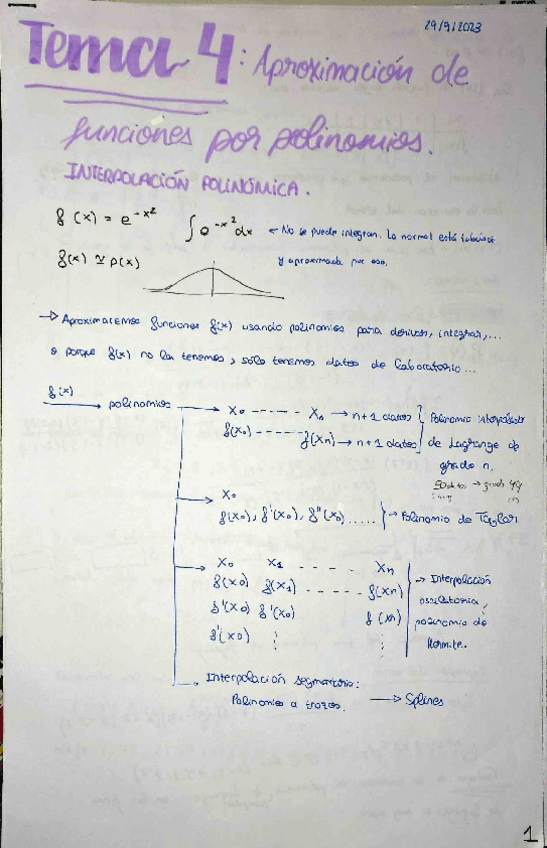 29/9/2023
Tema 4: Aproximación de
funciones por polinomios.
INTERPOLACIÓN POLINÓMICA.
f(x) = e^-x² ∫e^-x² dx ← No se puede integrar. La normal está
f(x) ≃ p(x) y aproximada por eso.
→ Aproximaremos funciones f(x) usando polinomios para derivar, integrar,...
o porque f(x) no la tenemos, solo tenemos datos de laboratorio...
f(x) → polinomios → x₀ ------ xₙ → n+1 datos } Polinomio
f(x₀) ------ f(xₙ) → n+1 datos de Lagrange de
grado n.
50 datos → grado 49
→ x₀
f(x₀), f'(x₀), f''(x₀) ..... } → Polinomio de Taylor
→ x₀ x₁ - - - - xₙ
f(x₀) f(x₁) ------ f(xₙ) → Interpolación
f'(x₀) f'(x₀) f(xn) osculatoria,
f'(x₀) ⋮ ⋮ polinomio de
Hermite.
→ Interpolación segmentaria:
Polinomios a trozos. → Splines
1